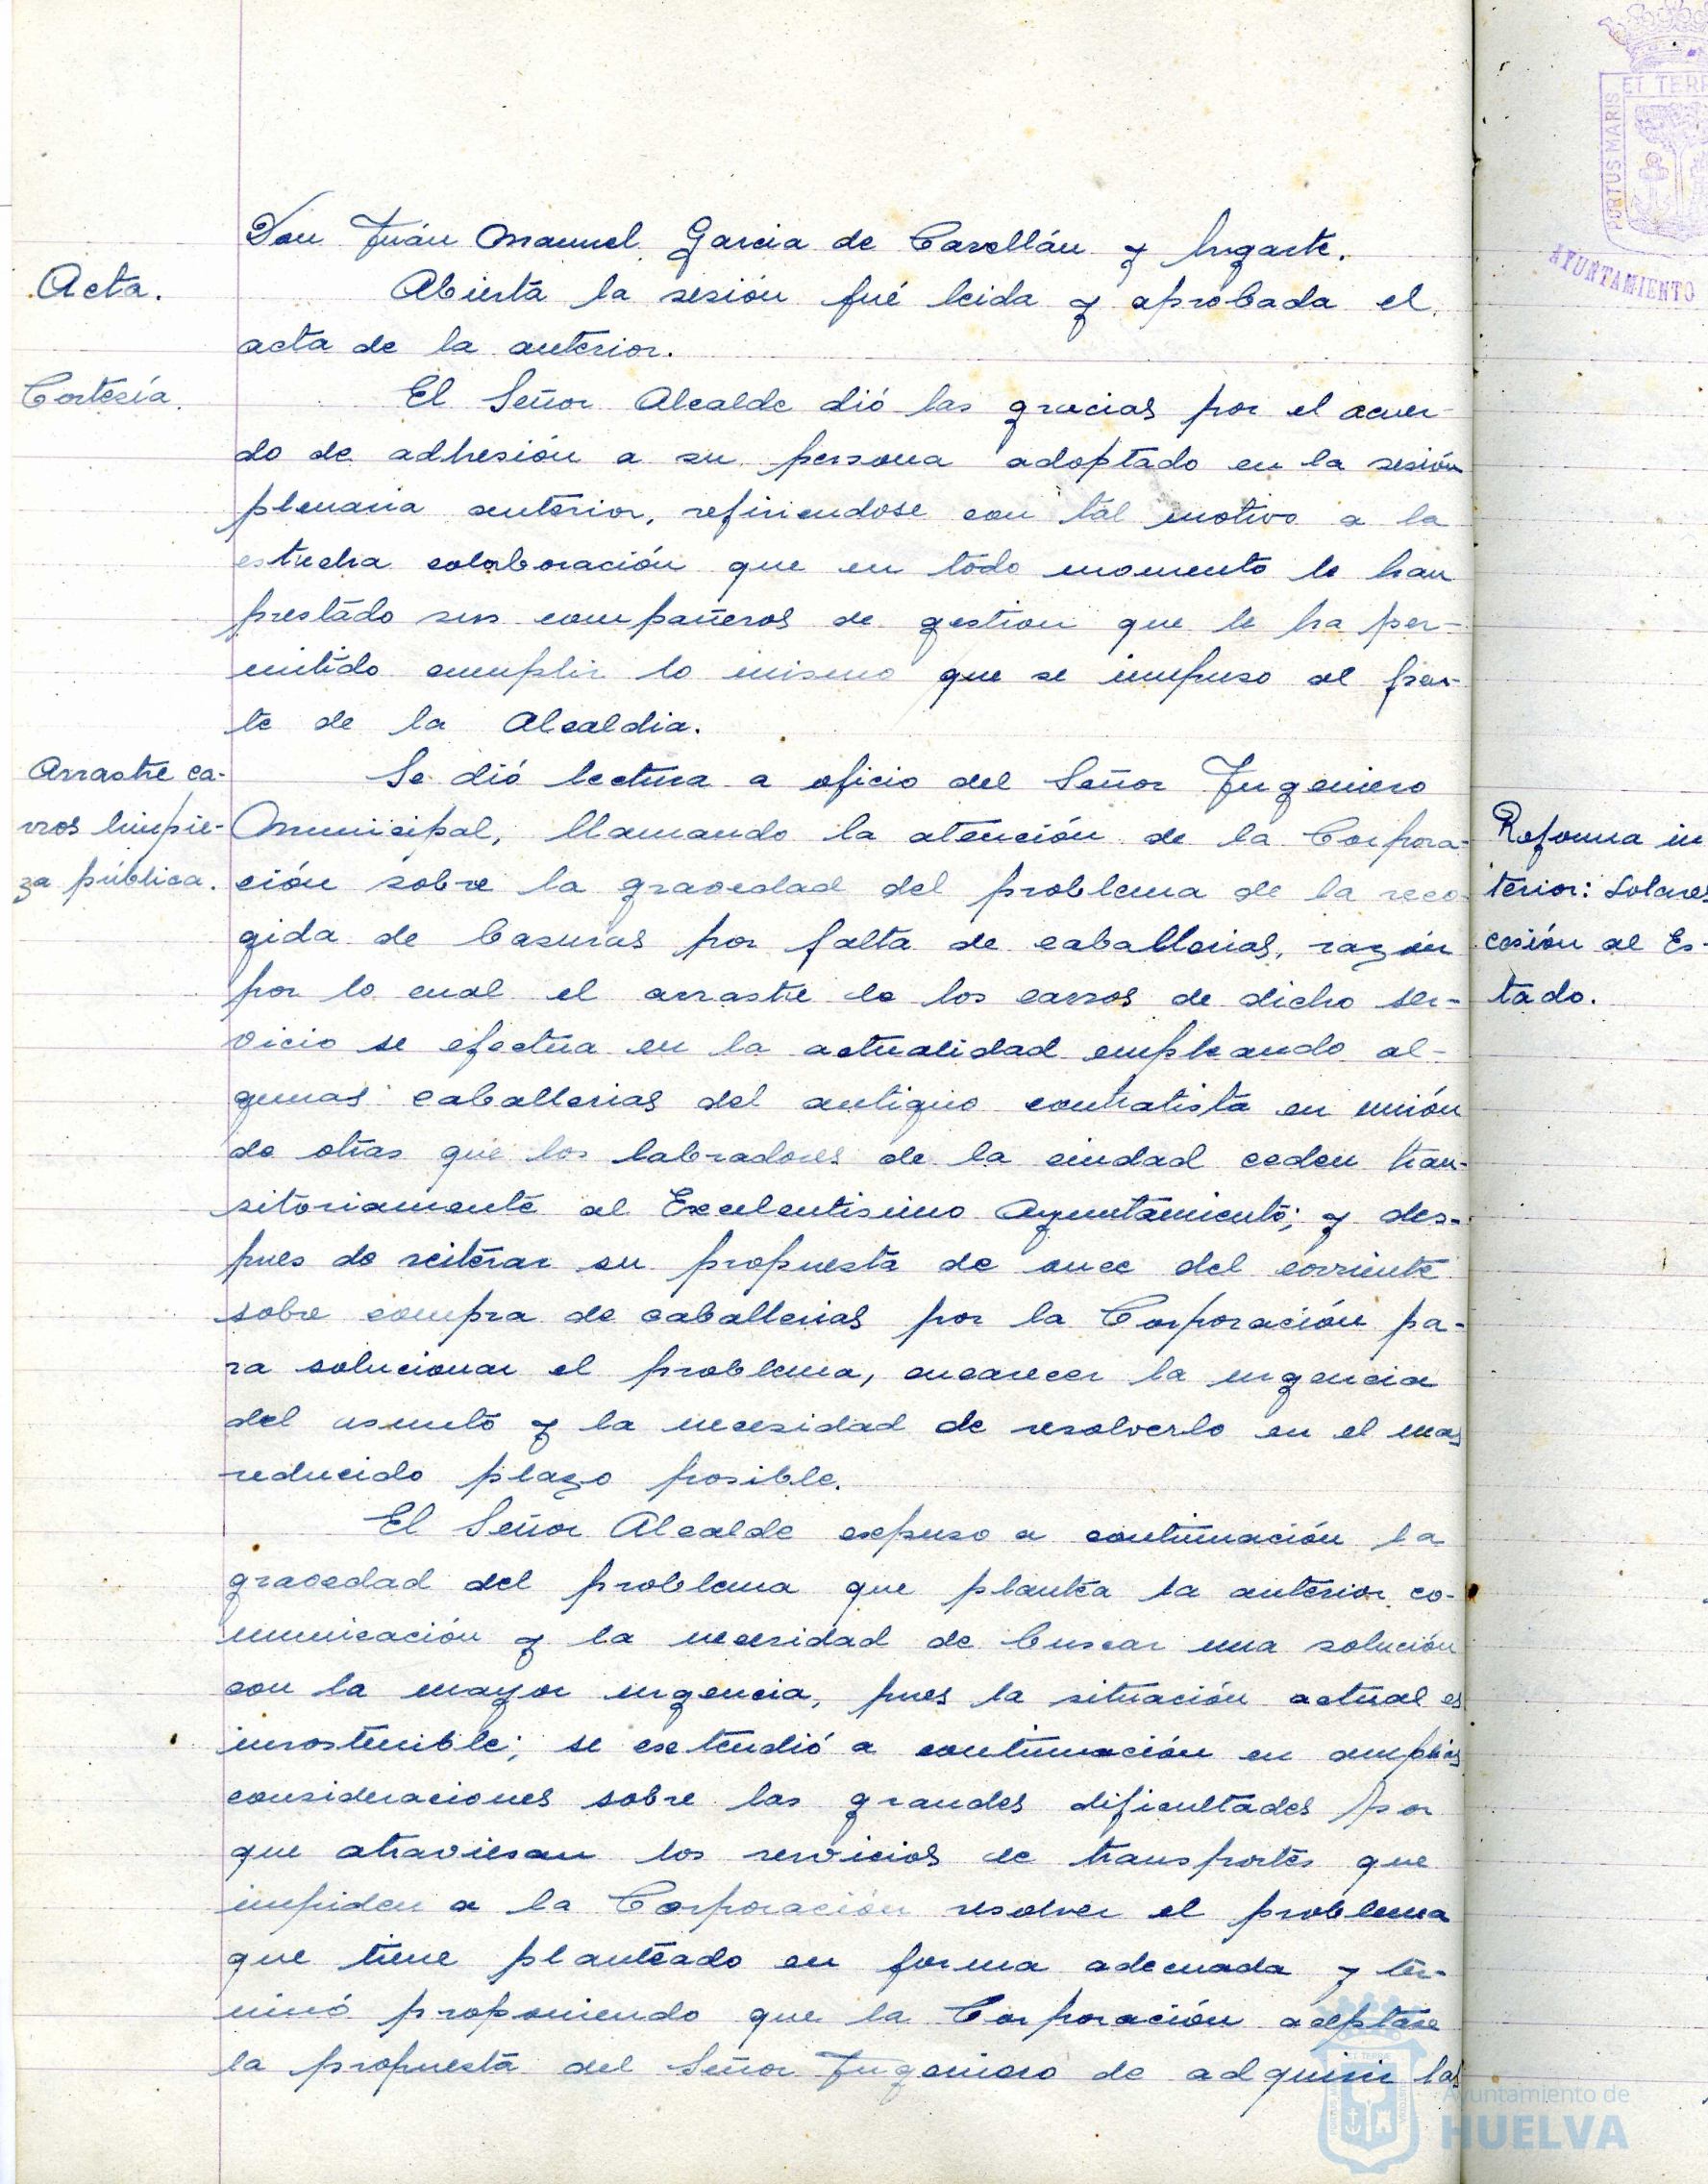 Don Juán Manuel Garcia de Casellán y Lugarte.
Acta.
Abierta la sesión fué leida y aprobada el
acta de la anterior.
Cortesía.
El Señor Alcalde dió las gracias por el acuer-
do de adhesión a su persona adoptado en la sesión
plenaria anterior, refiriendose con tal motivo a la
estrecha colaboración que en todo momento le han
prestado sus compañeros de gestion que le ha per-
mitido cumplir lo mismo que se impuso al fren-
te de la Alcaldia.
Arrastre ca-
rros limpie-
za pública.
Se dió lectura a oficio del Señor Ingeniero
Municipal, llamando la atención de la Corpora-
ción sobre la gravedad del problema de la reco-
gida de basuras por falta de caballerias, razón
por lo cual el arrastre de los carros de dicho ser-
vicio se efectua en la actualidad empleando al-
gunas caballerias del antiguo contratista en unión
de otras que los labradores de la ciudad ceden tran-
sitoriamente al Excelentisimo Ayuntamiento; y des-
pues de reiterar su propuesta de once del corriente
sobre compra de caballerias por la Corporación pa-
ra solucionar el problema, encarecer la urgencia
del asunto y la necesidad de resolverlo en el mas
reducido plazo posible.
El Señor Alcalde expuso a continuación la
gravedad del problema que plantea la anterior co-
municación y la necesidad de buscar una solución
con la mayor urgencia, pues la situación actual es
insostenible; se extendió a continuación en amplias
consideraciones sobre las grandes dificultades por
que atraviesan los servicios de transportes que
impiden a la Corporación resolver el problema
que tiene planteado en forma adecuada y ter-
minó proponiendo que la Corporación aceptase
la propuesta del Señor Ingeniero de adquirir las
Reforma in
terior: Solares
cesión al Es-
tado.
PORTUS MARIS ET TERR
AYUNTAMIENTO
Ayuntamiento de
HUELVA